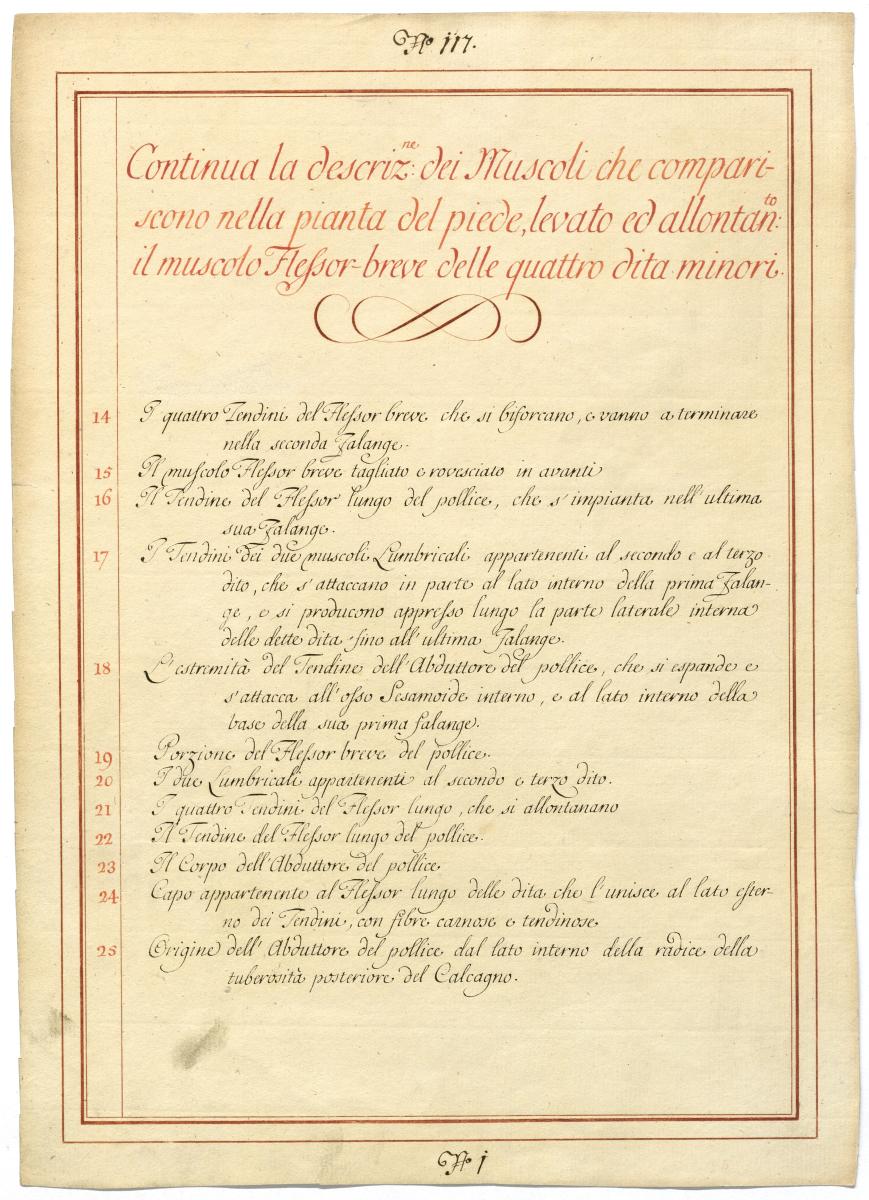 No 117.
Continua la descriz.ne: dei Muscoli che compari-
scono nella pianta del piede, levato ed allontan.to:
il muscolo Flessor-breve delle quattro dita minori.
14 I quattro Tendini del Flessor breve che si biforcano, e vanno a terminare
nella seconda Falange.
15 Il muscolo Flessor breve tagliato e rovesciato in avanti
16 Il Tendine del Flessor lungo del pollice, che s'impianta nell'ultima
sua Falange.
17 I Tendini dei due muscoli Lumbricali appartenenti al secondo e al terzo
dito, che s'attaccano in parte al lato interno della prima Falan-
ge, e si producono appresso lungo la parte laterale interna
delle dette dita fino all'ultima Falange.
18 L'estremità del Tendine dell'Abduttore del pollice, che si espande e
s'attacca all'osso Sesamoide interno, e al lato interno della
base della sua prima falange.
19 Porzione del Flessor breve del pollice.
20 I due Lumbricali appartenenti al secondo e terzo dito.
21 I quattro Tendini del Flessor lungo, che si allontanano
22 Il Tendine del Flessor lungo del pollice.
23 Il Corpo dell'Abduttore del pollice
24 Capo appartenente al Flessor lungo delle dita che l'unisce al lato ester-
no dei Tendini, con fibre carnose e tendinose
25 Origine dell'Abduttore del pollice dal lato interno della radice della
tuberosità posteriore del Calcagno.
No 1